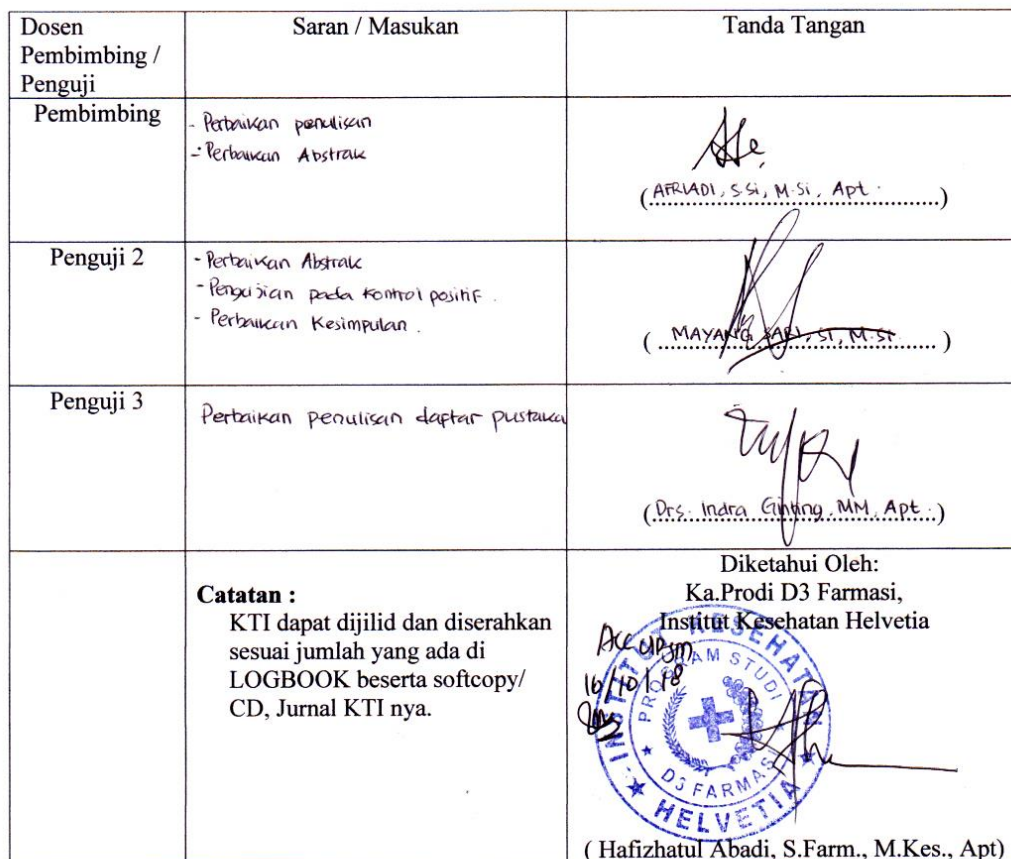 Dosen
Pembimbing /
Penguji
Saran / Masukan
Tanda Tangan
Pembimbing
- Perbaikan penulisan
- Perbaikan Abstrak
(AFRIADI, S.Si, M.Si, Apt.)
Penguji 2
- Perbaikan Abstrak
- Pengujian pada kontrol positif.
- Perbaikan Kesimpulan.
( MAYANG SARI, ST, M.Si )
Penguji 3
Perbaikan penulisan daftar pustaka
(Drs. Indra Ginting, MM, Apt.)
Catatan :
KTI dapat dijilid dan diserahkan
sesuai jumlah yang ada di
LOGBOOK beserta softcopy/
CD, Jurnal KTI nya.
Diketahui Oleh:
Ka.Prodi D3 Farmasi,
Institut Kesehatan Helvetia
Acc
16/10/18
INSTITUT KESEHATAN
PROGRAM STUDI
D3 FARMASI
HELVETIA
( Hafizhatul Abadi, S.Farm., M.Kes., Apt)